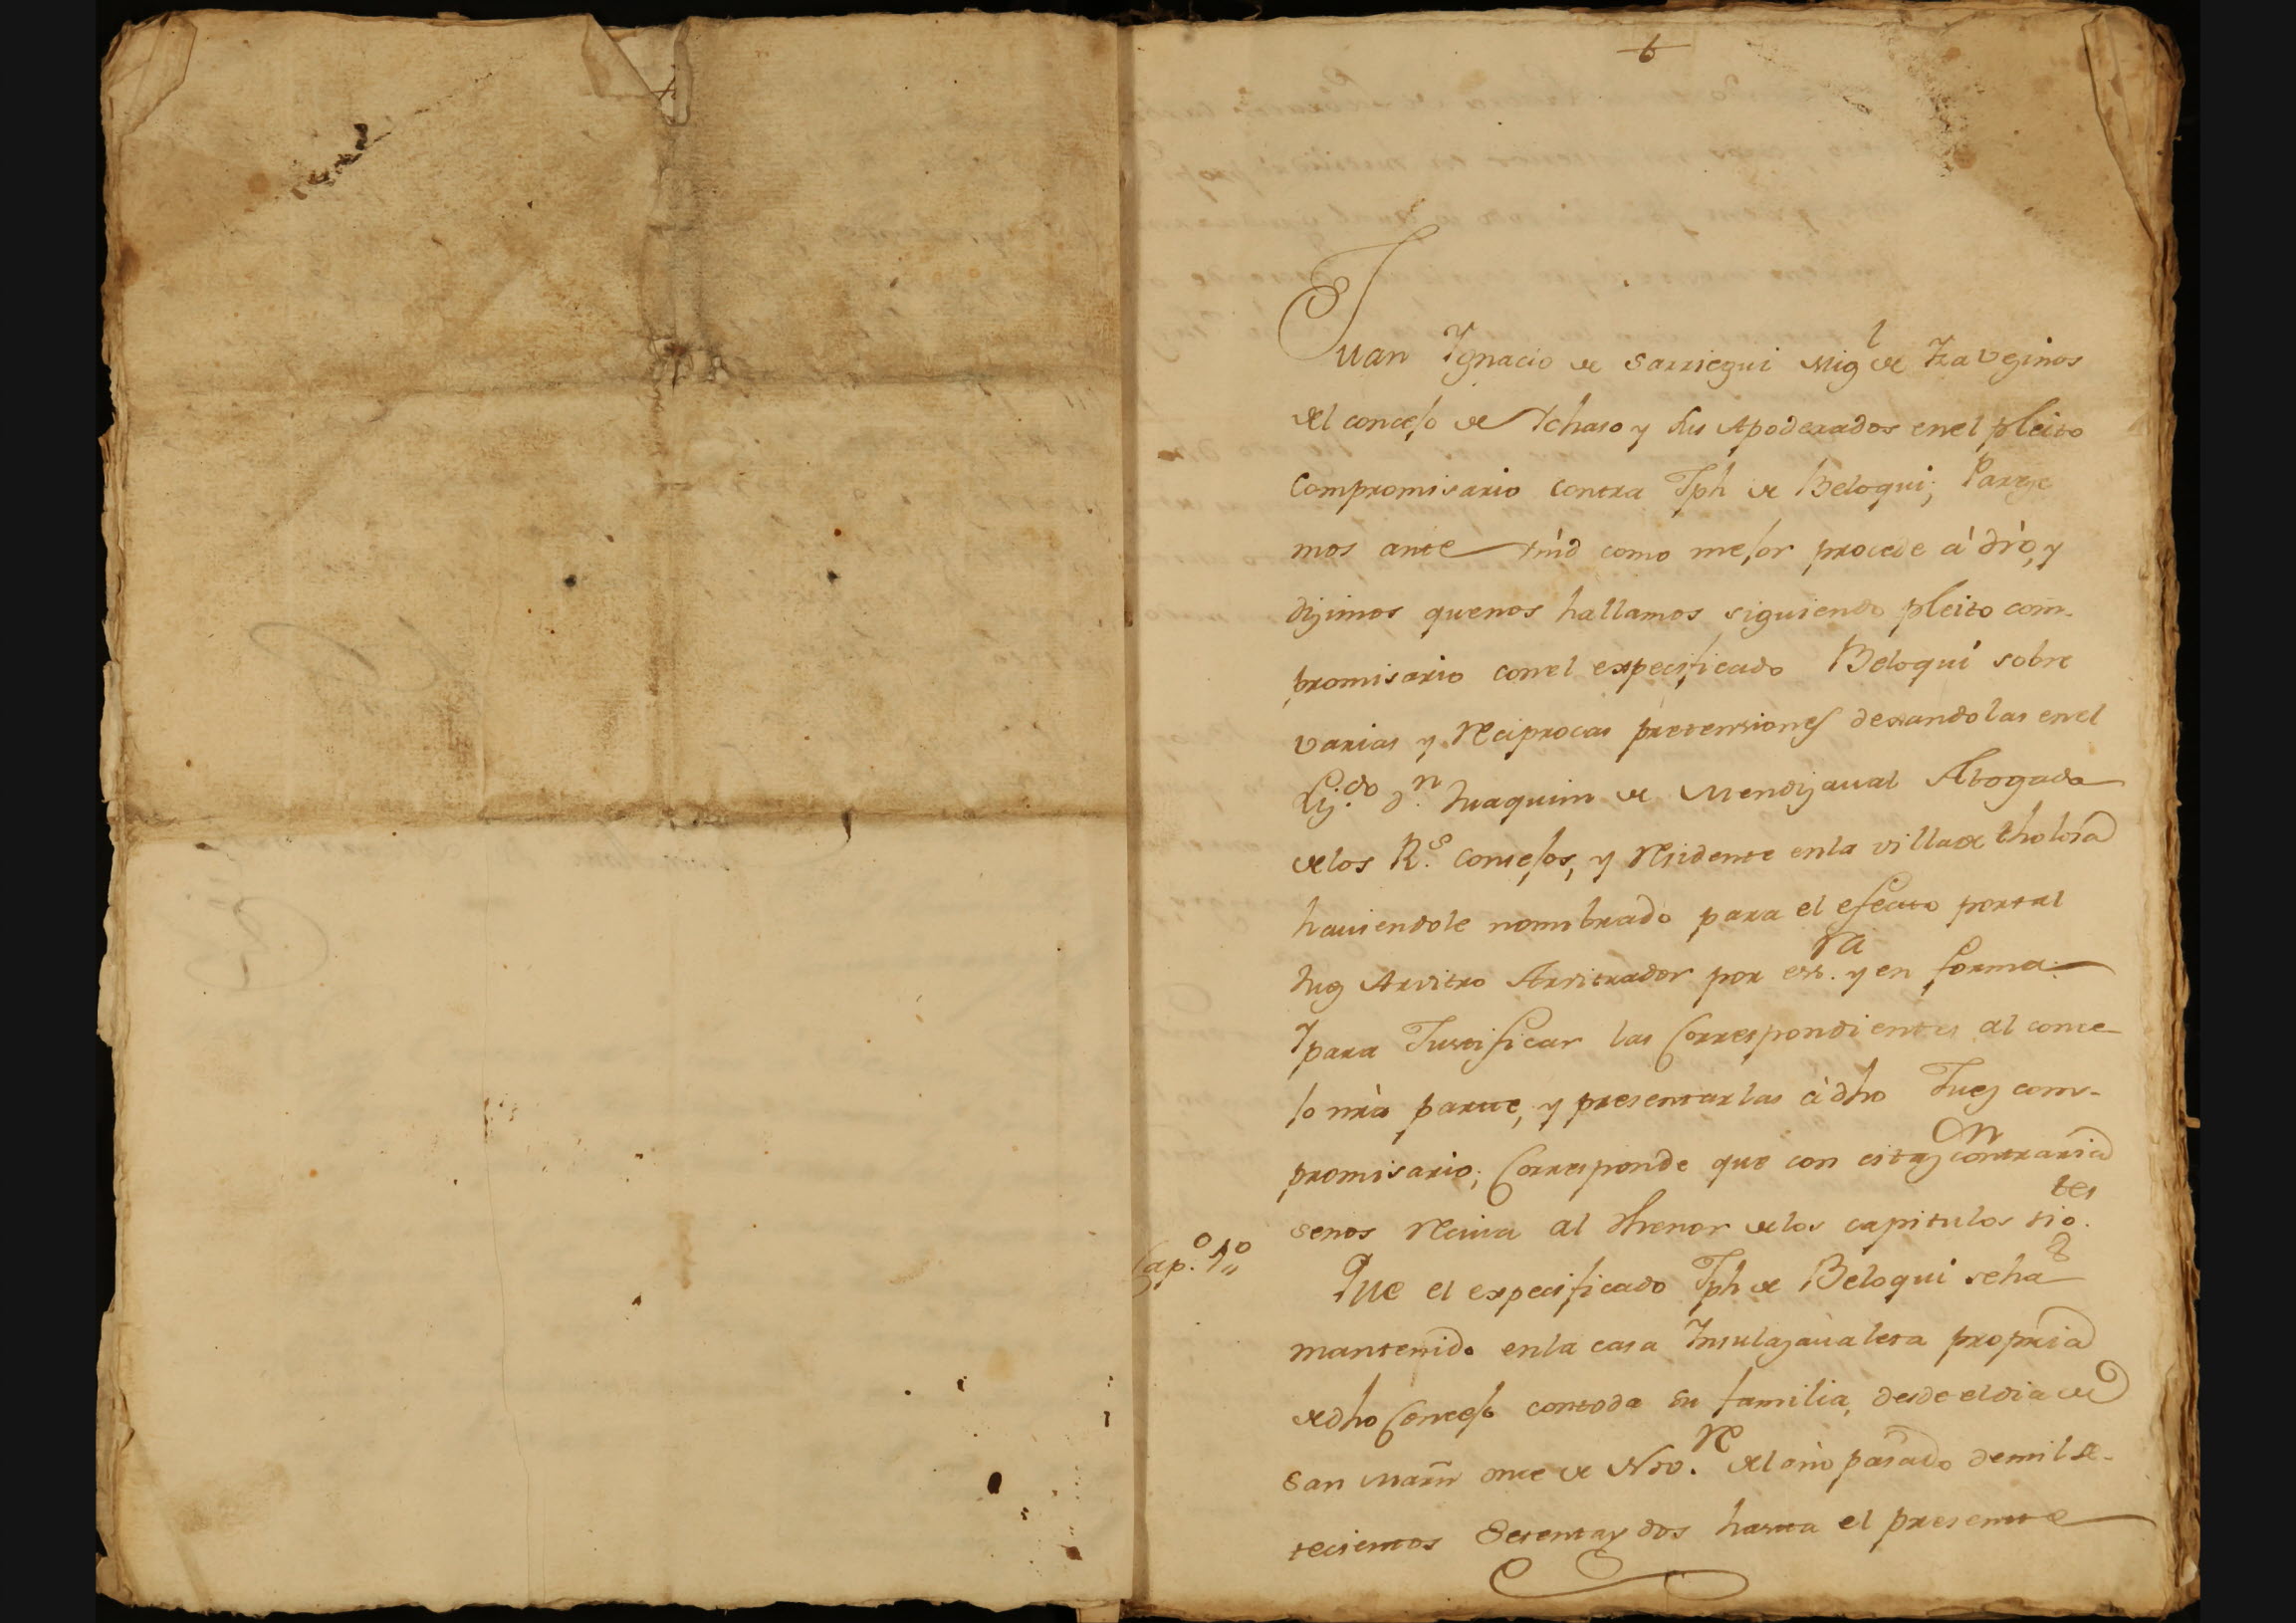 Juan Ygnacio de Sarriegui Mig.l de Yza vezinos
del concejo de Ichaso y sus Apoderados enel pleito
Compromisario contra Jph de Beloqui; Pareze
mos ante Vmd como mejor procede â dro, y
dezimos quenos hallamos siguiendo pleito com-
promisario conel expecificado Beloqui sobre
varias y Reciprocas pretensiones dexandolas enel
Liz.do d.n Juaquin de Mendizaval Abogado
delos R.s Consejos, y Residente enla villa de tholosa
haviendole nombrado para el efecto portal
Juez Arvitro Arvitrador por ess.ra y en forma.
Y para Justificar las Correspondientes al conce
jo nrà parte, y presentarlas à dho Juez com-
promisario; Corresponde que con citaz.on contraria
senos Reciva al thenor delos capitulos sig.tes
Cap.o 1.o
Que el expecificado Jph de Beloqui seha
mantenido enla casa Insulazavaleta propria
de dho Concejo contoda su familia, desde eldia de
San Martn once de Nov.re del año pasado de mil se-
tecientos Setentay dos hasta el presente